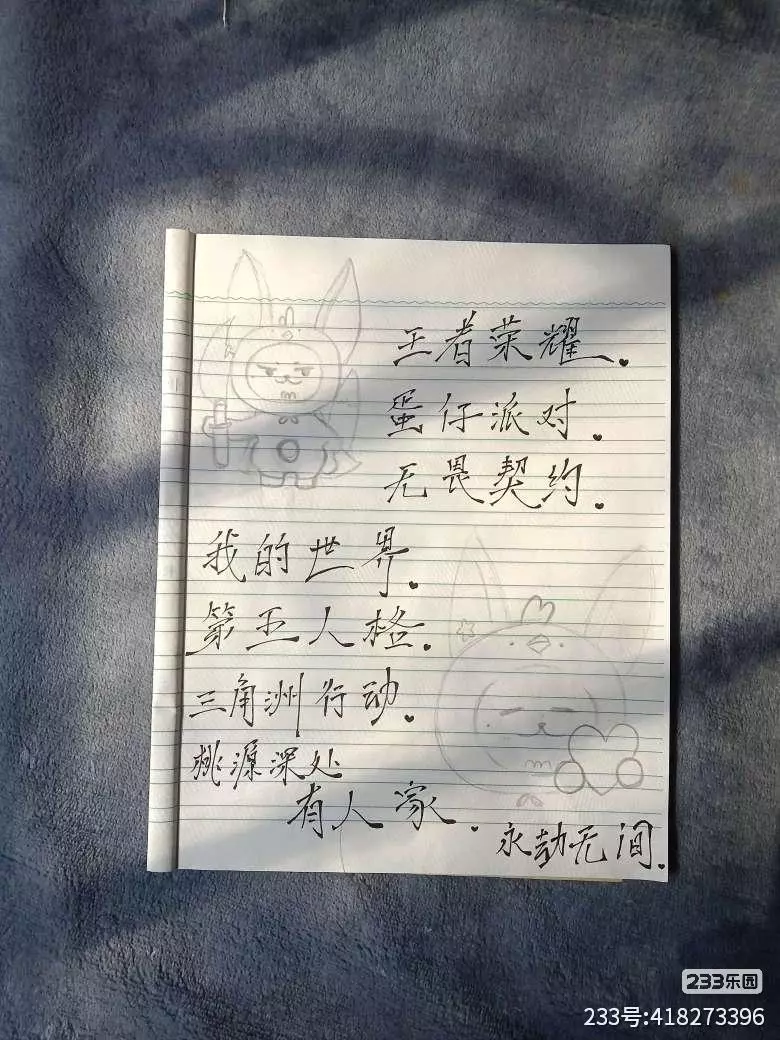 王者荣耀
蛋仔派对
无畏契约
我的世界
第五人格
三角洲行动
桃源深处
有人家
永劫无间
233乐园
233号:418273396